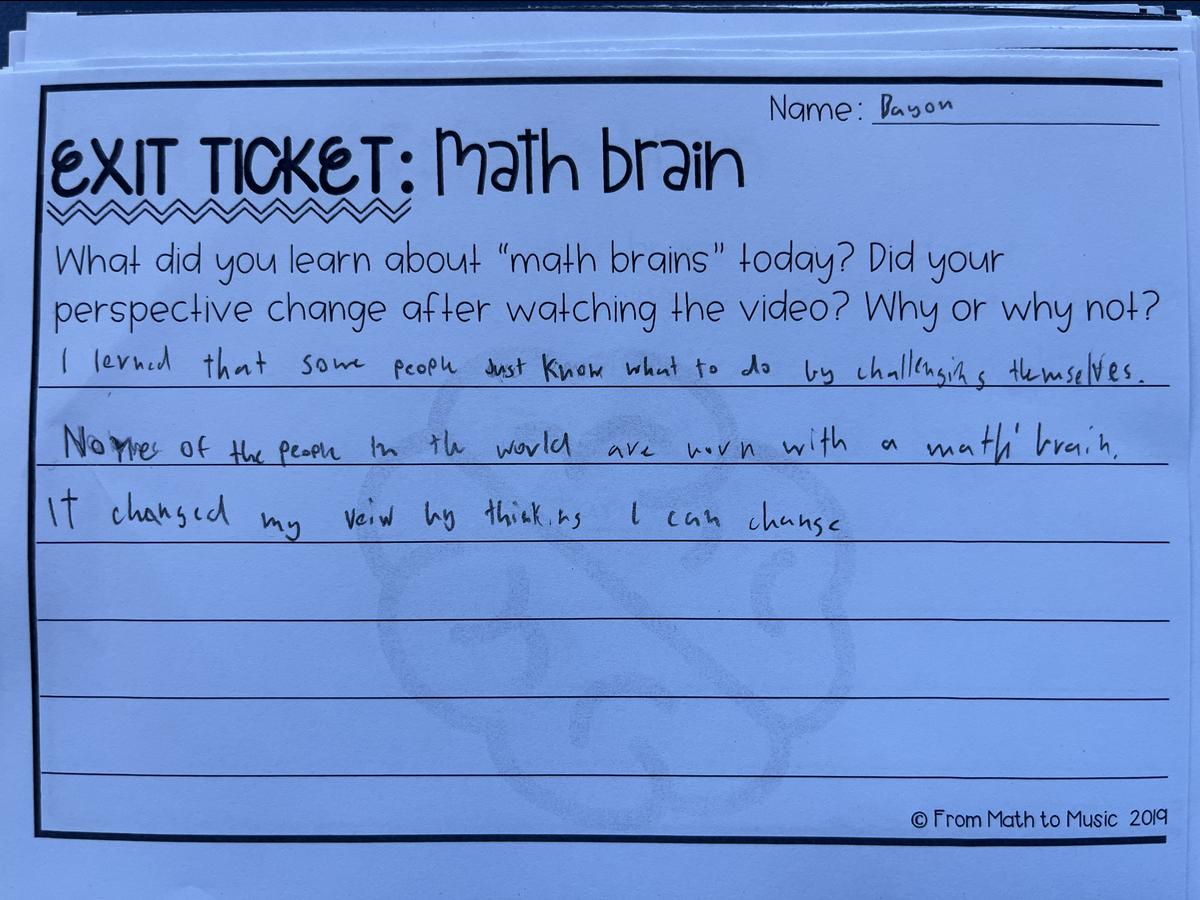 Name: Bayon
EXIT TICKET: Math brain
What did you learn about “math brains” today? Did your
perspective change after watching the video? Why or why not?
I lerned that some people Just Know what to do by challenging themselves.
None of the people in the world are born with a math brain.
IT changed my veiw by thinking I can change
© From Math to Music 2019